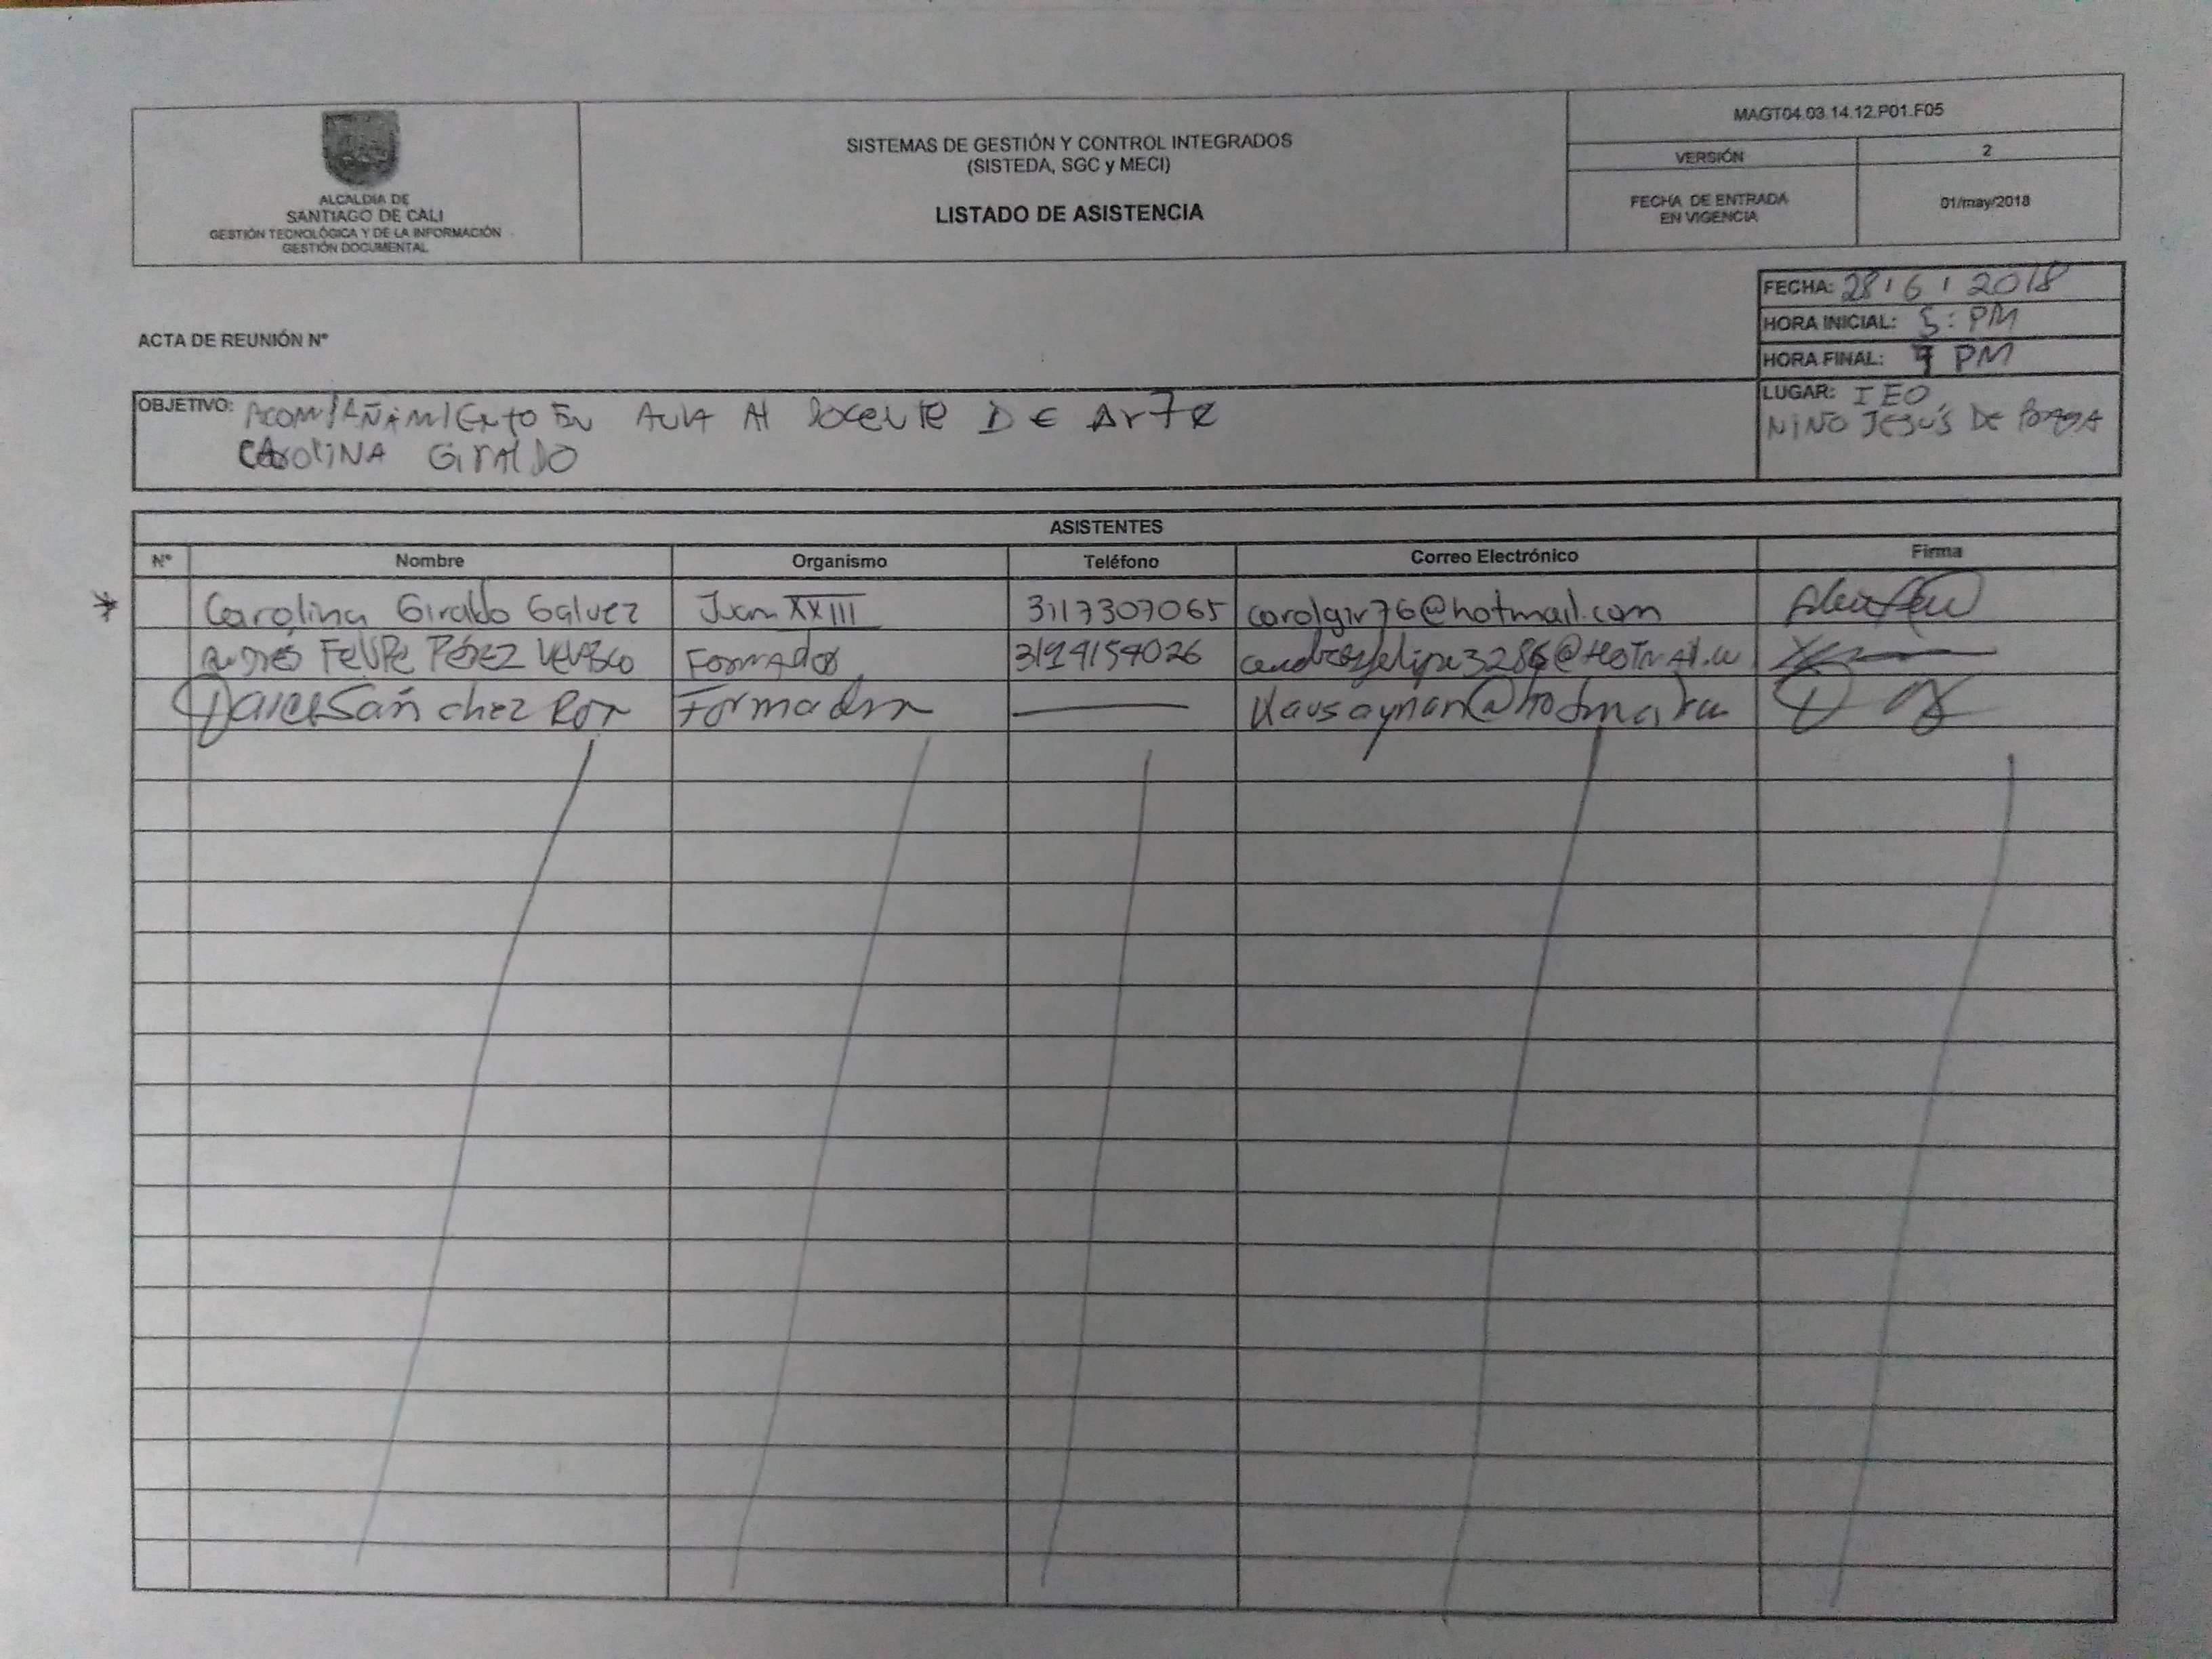 ALCALDÍA DE
SANTIAGO DE CALI
GESTIÓN TECNOLÓGICA Y DE LA INFORMACIÓN
GESTIÓN DOCUMENTAL
SISTEMAS DE GESTIÓN Y CONTROL INTEGRADOS
(SISTEDA, SGC y MECI)
LISTADO DE ASISTENCIA
MAGT04.03.14.12.P01.F05
VERSIÓN 2
FECHA DE ENTRADA
EN VIGENCIA
01/may/2018
FECHA: 28 / 6 / 2018
HORA INICIAL: 5: PM
HORA FINAL: PM
ACTA DE REUNIÓN Nº
LUGAR: IEO
NIÑO JESÚS DE
OBJETIVO: ACOMPAÑAMIENTO EN AULA Al DOCENTE DE ArTE
CAROLINA GIRALDO
ASISTENTES
Nº Nombre Organismo Teléfono Correo Electrónico Firma
Carolina Giraldo Galvez Juan XXIII 3117307065 carolgir76@hotmail.com
Andrés FELIPE PÉREZ VELASCO Formador
Sánchez Formadora